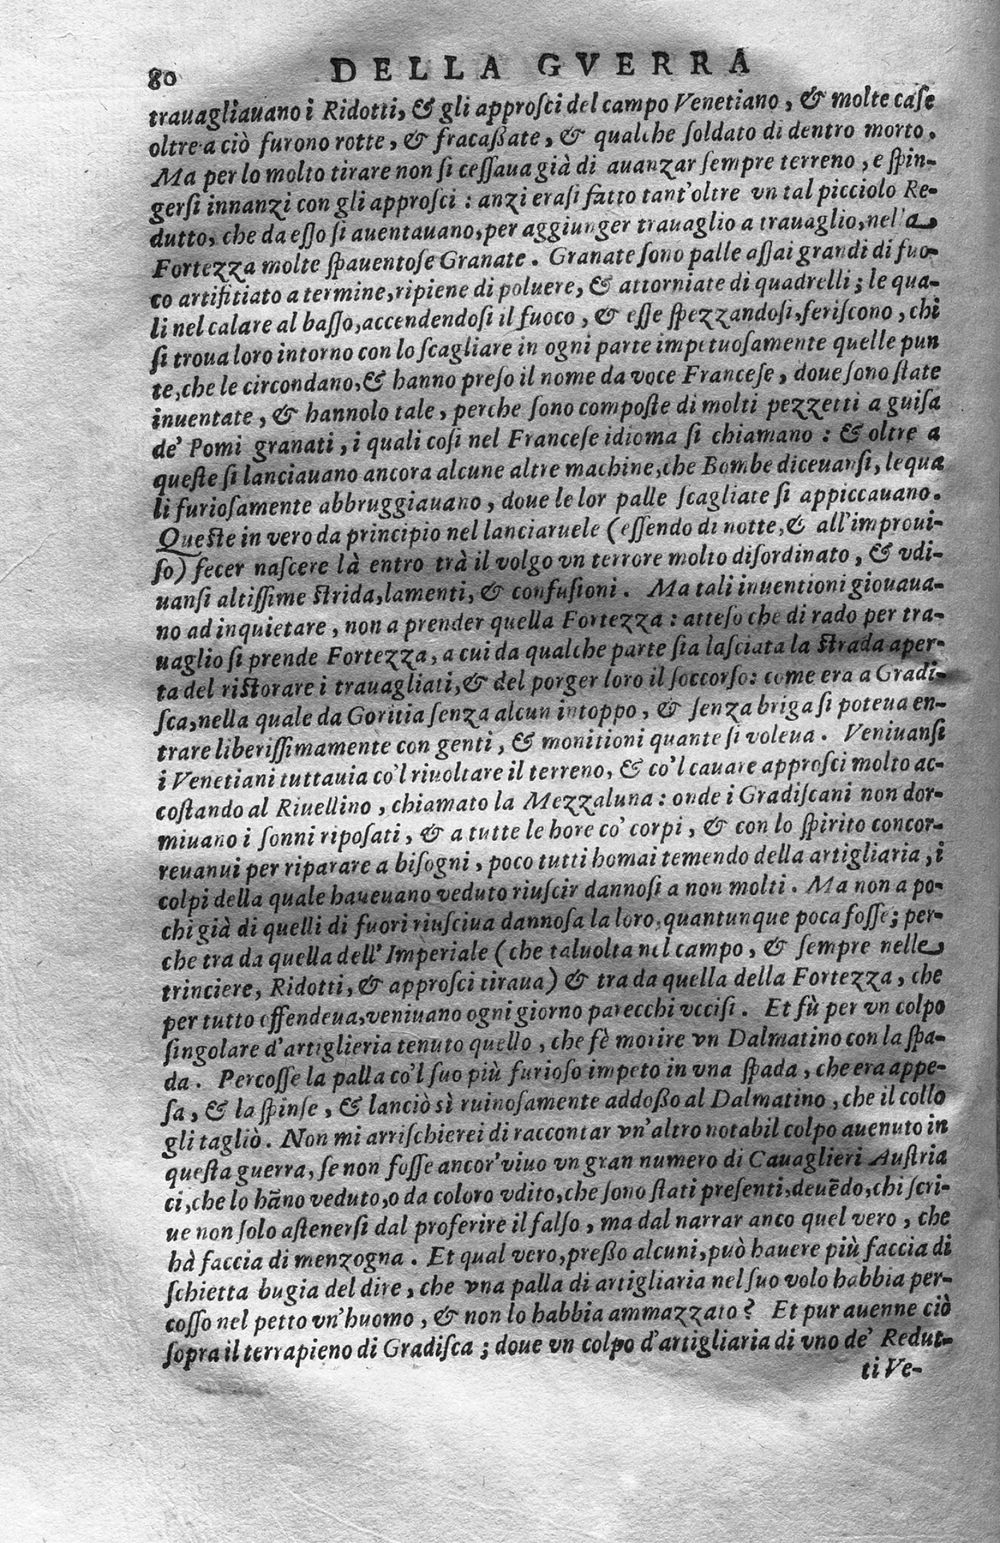 80 DELLA GVERRA
trauagliauano i Ridotti, & gli approſci del campo Venetiano, & molte caſe
oltre a ciò furono rotte, & fracaßate, & qualche ſoldato di dentro morto.
Ma per lo molto tirare non ſi ceſſaua già di auanzar ſempre terreno, e ſpin-
gerſi innanzi con gli approſci: anzi eraſi fatto tant'oltre vn tal picciolo Re-
dutto, che da eſſo ſi auentauano, per aggiunger trauaglio a trauaglio, nella
Fortezza molte ſpauentoſe Granate. Granate ſono palle aſſai grandi di fuo-
co artifitiato a termine, ripiene di poluere, & attorniate di quadrelli; le qua-
li nel calare al baſſo, accendendoſi il fuoco, & eſſe ſpezzandoſi, feriſcono, chi
ſi troua loro intorno con lo ſcagliare in ogni parte impetuoſamente quelle pun
te, che le circondano, & hanno preſo il nome da voce Franceſe, doue ſono ſtate
inuentate, & hannolo tale, perche ſono compoſte di molti pezzetti a guiſa
de' Pomi granati, i quali coſi nel Franceſe idioma ſi chiamano: & oltre a
queſte ſi lanciauano ancora alcune altre machine, che Bombe diceuanſi, le qua
li furioſamente abbruggiauano, doue le lor palle ſcagliate ſi appiccauano.
Queſte in vero da principio nel lanciaruele (eſſendo di notte, & all'improui-
ſo) fecer naſcere là entro trà il volgo vn terrore molto diſordinato, & vdi-
uanſi altiſſime ſtrida, lamenti, & confuſioni. Ma tali inuentioni giouaua-
no ad inquietare, non a prender quella Fortezza: atteſo che di rado per tra-
uaglio ſi prende Fortezza, a cui da qualche parte ſia laſciata la ſtrada aper-
ta del riſtorare i trauagliati, & del porger loro il ſoccorſo: come era a Gradi-
ſca, nella quale da Goritia ſenza alcun intoppo, & ſenza briga ſi poteua en-
trare liberiſſimamente con genti, & monitioni quante ſi voleua. Veniuanſi
i Venetiani tuttauia co'l riuoltare il terreno, & co'l cauare approſci molto ac-
coſtando al Riuellino, chiamato la Mezzaluna: onde i Gradiſcani non dor-
miuano i ſonni ripoſati, & a tutte le hore co' corpi, & con lo ſpirito concor-
reuanui per riparare a biſogni, poco tutti homai temendo della artigliaria, i
colpi della quale haueuano veduto riuſcir dannoſi a non molti. Ma non a po-
chi già di quelli di fuori riuſciua dannoſa la loro, quantunque poca foſſe; per-
che tra da quella dell'Imperiale (che taluolta nel campo, & ſempre nelle
trinciere, Ridotti, & approſci tiraua) & tra da quella della Fortezza, che
per tutto offendeua, veniuano ogni giorno parecchi vcciſi. Et fù per vn colpo
ſingolare d'artiglieria tenuto quello, che fè morire vn Dalmatino con la ſpa-
da. Percoſſe la palla co'l ſuo più furioſo impeto in vna ſpada, che era appe-
ſa, & la ſpinſe, & lanciò sì ruinoſamente addoßo al Dalmatino, che il collo
gli tagliò. Non mi arriſchierei di raccontar vn'altro notabil colpo auenuto in
queſta guerra, ſe non foſſe ancor'viuo vn gran numero di Cauaglieri Auſtria
ci, che lo hãno veduto, o da coloro vdito, che ſono ſtati preſenti, deuẽdo, chi ſcri-
ue non ſolo aſtenerſi dal proferire il falſo, ma dal narrar anco quel vero, che
hà faccia di menzogna. Et qual vero, preßo alcuni, può hauere più faccia di
ſchietta bugia del dire, che vna palla di artigliaria nel ſuo volo habbia per-
coſſo nel petto vn'huomo, & non lo habbia ammazzato? Et pur auenne ciò
ſopra il terrapieno di Gradiſca; doue vn colpo d'artigliaria di vno de' Redut-
ti Ve-